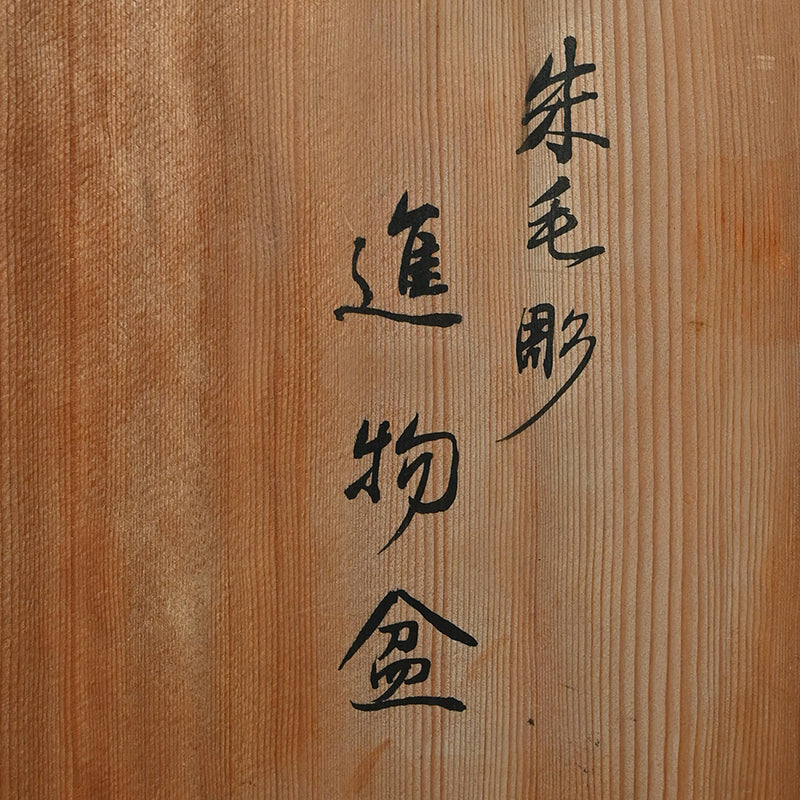 朱毛彫
進物盆